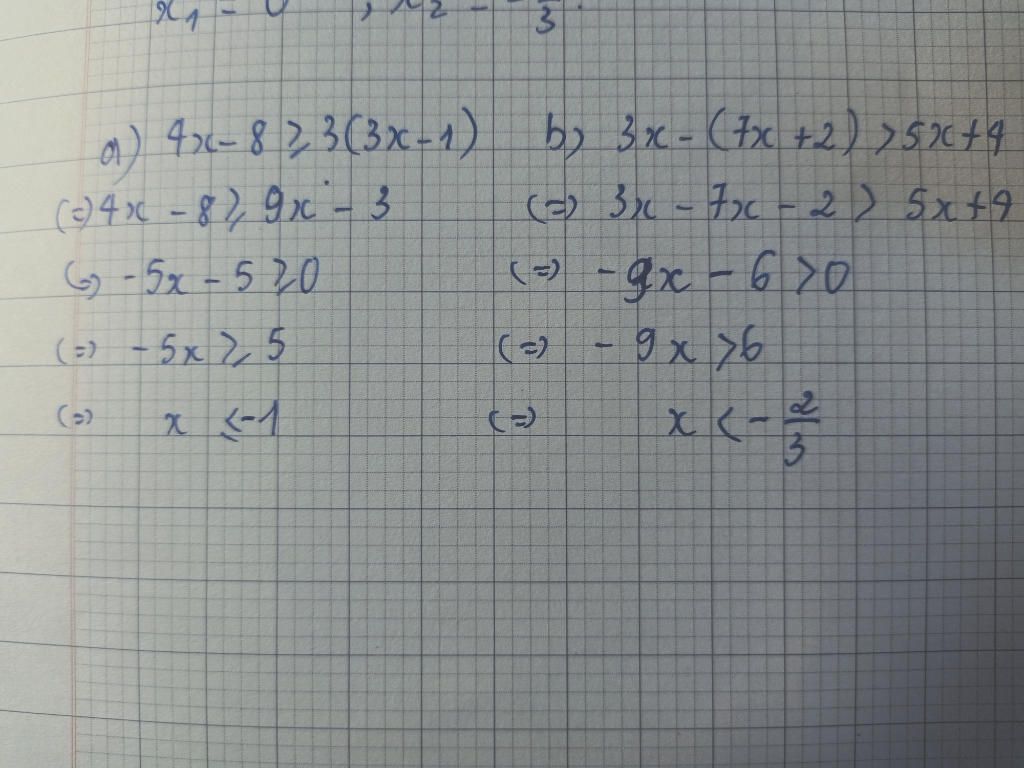 x₁ = 0 , x₂ = 
a) 4x - 8 ⩾ 3(3x - 1)
(=) 4x - 8 ⩾ 9x - 3
(=) -5x - 5 ⩾ 0
(=) -5x ⩾ 5
(=) x ⩽ -1
b) 3x - (7x + 2) > 5x + 4
(=) 3x - 7x - 2 > 5x + 4
(=) -9x - 6 > 0
(=) -9x > 6
(=) x < -2/3